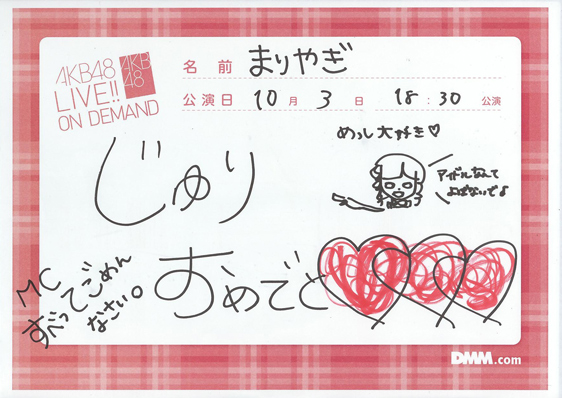 AKB48
LIVE!!
ON DEMAND
AKB
48
名前 まりやぎ
公演日 10月3日 18:30 公演
めっし大好き♡
アイドルなんて
よばないでよ
じゅり
おめでと
MC
すべってごめん
なさい。
DMM.com